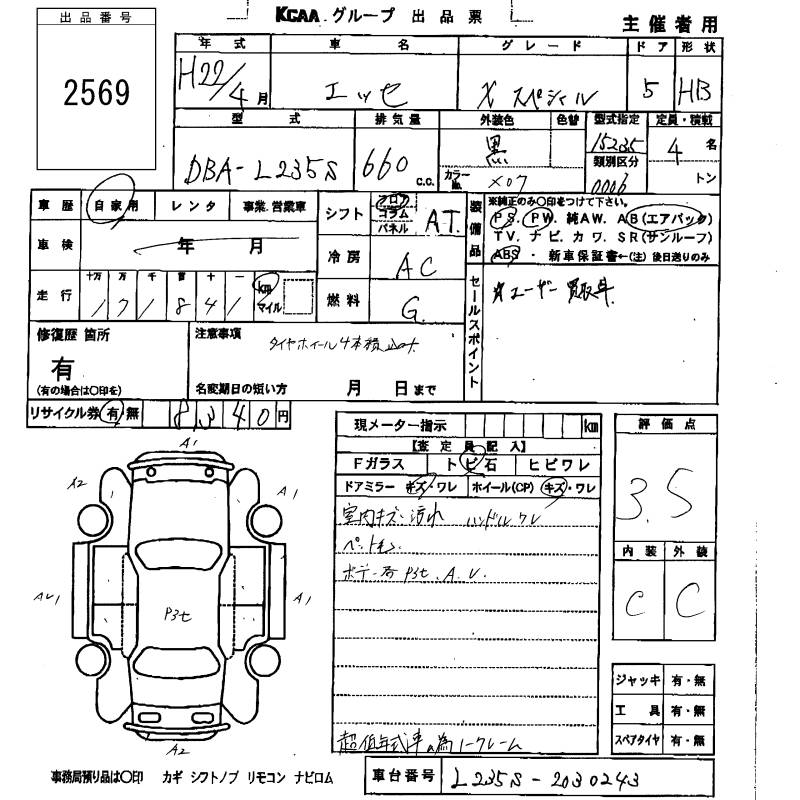 KCAA グループ 出品票
主催者用
出品番号
2569
年式 車名 グレード ドア 形状
H22/4月 エッセ X スペシャル 5 HB
型式 排気量 外装色 色替 型式指定 定員・積載
DBA-L235S 660 c.c. 黒 15235 4 名
カラーNo. X07 類別区分 0006 トン
車歴 自家用 レンタ 事業.営業車
シフト フロア コラム パネル AT
装備品 ※純正のみ〇印をつけて下さい。
PS. PW. 純AW. AB(エアバック)
TV. ナビ. カワ. SR(サンルーフ)
ABS・新車保証書←(注)後日送りのみ
車検 年 月
冷房 AC
走行 十万 万 千 百 十 一 km マイル
171841
燃料 G
セールスポイント
ユーザー買取車
修復歴 箇所
有
(有の場合は〇印を)
注意事項
タイヤホイール4本積込み
名変期日の短い方 月 日まで
リサイクル券 有・無 8340円
現メーター指示 km
【査定員記入】
Fガラス トビ石 ヒビワレ
ドアミラー キズ・ワレ ホイール(CP) キズ・ワレ
室内キズ・汚れ ハンドルワレ
ボデー P3t. A.U.
超低年式車の為ノークレーム
評価点
3.5
内装 外装
C C
ジャッキ 有・無
工具 有・無
スペアタイヤ 有・無
A1
A2
A1
AU1
P3t
A1
A2
事務局預り品は〇印 カギ シフトノブ リモコン ナビロム
車台番号 L235S-2030243